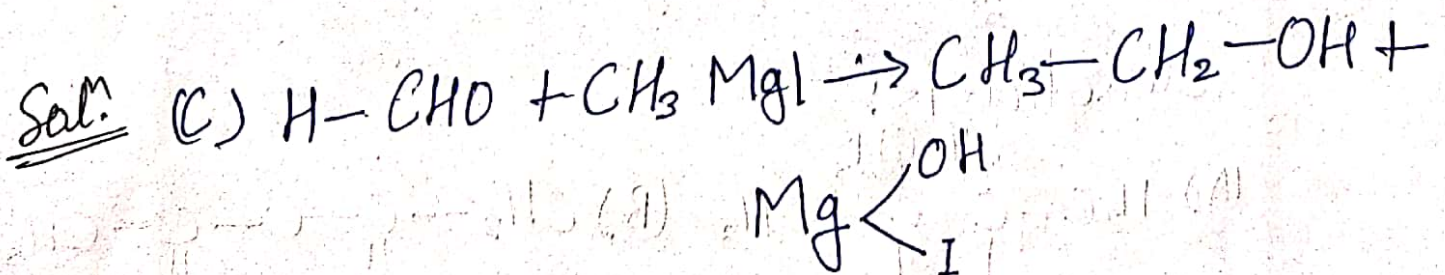 Sol.ⁿ (C) H-CHO + CH₃ MgI → CH₃-CH₂-OH +
Mg<OH
I